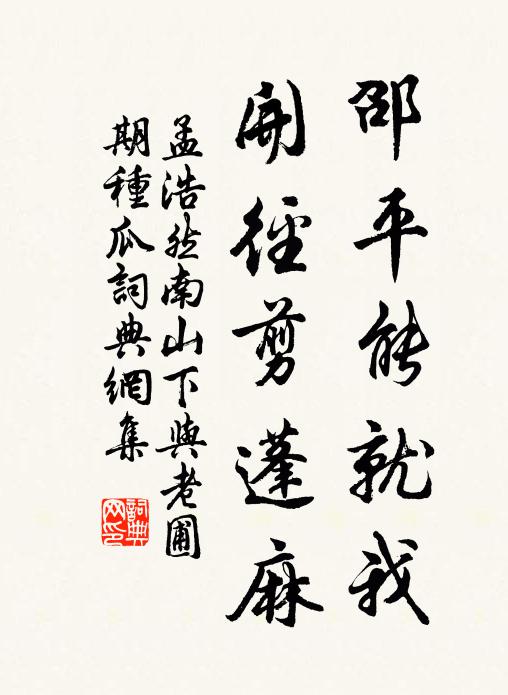 邵平能就我
開徑剪蓬麻
孟浩然南山下與老圃
期種瓜詞典網集
詞典
网印